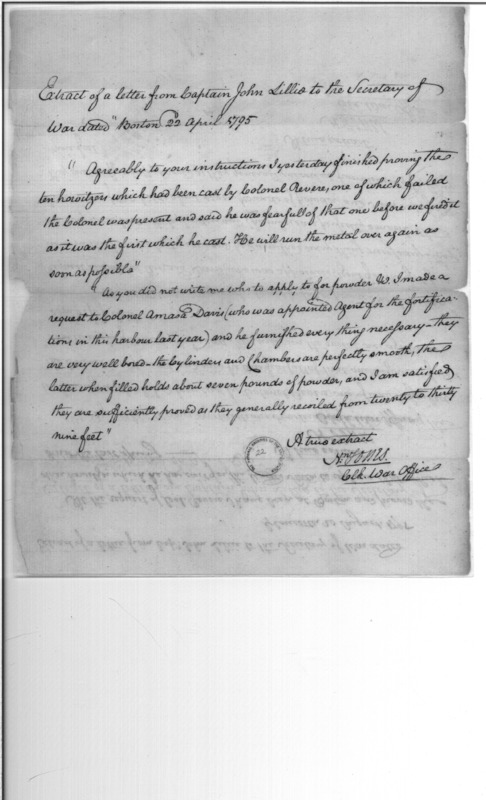 Extract of a letter from Captain John Lillie to the Secretary of
War dated "Boston 22 April 1795
"Agreeably to your instructions I yesterday finished proving the
ten howitzers which had been cast by Colonel Revere, one of which failed
the Colonel was present and said he was fearfull of that one before we fired it
as it was the first which he cast. He will run the metal over again as
soon as possible"
"As you did not write me who to apply to for powder &c. I made a
request to Colonel Amasa Davis (who was appointed Agent for the fortifica-
tions in this harbour last year) and he furnished every thing necessary - they
are very well bored - the Cylinders and Chambers are perfectly smooth, the
latter when filled holds about seven pounds of powder, and I am satisfied
they are sufficiently proved as they generally recoiled from twenty to thirty
nine feet"
A true extract
Clk. War Office
22